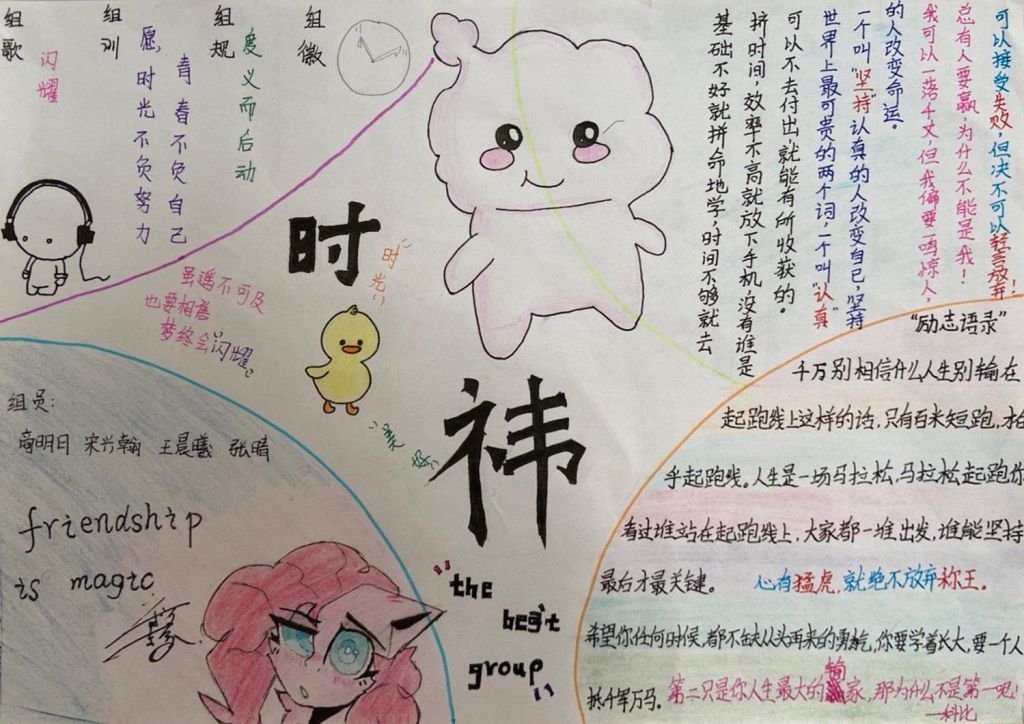 组歌
闪耀
组训
愿，时光不负努力
青春不负自己
组规
度义而后动
组徽
可以接受失败，但决不可以轻言放弃！
总有人要赢，为什么不能是我！
我可以一落千丈，但我偏要一鸣惊人，
的人改变命运。
一个叫“坚持”认真的人改变自己，坚持
世界上最可贵的两个词，一个叫“认真”
可以不去付出就能有所收获的。
拼时间，效率不高就放下手机，没有谁是
基础不好就拼命地学，时间不够就去
时
“时光”
虽遥不可及
也要相信
梦终会“闪耀”
祎
“美好”
“the
best
group”
组员：
高明日 宋兴翰 王晨曦 张晴
friendship
is magic
“励志语录”
千万别相信什么人生别输在
起跑线上这样的话，只有百米短跑，才在
乎起跑线。人生是一场马拉松，马拉松起跑你
看过谁站在起跑线上，大家都一堆出发，谁能坚持
最后才最关键。 心有猛虎，就绝不放弃称王。
希望你任何时候，都不缺从头再来的勇气，你要学着长大，要一个人
抵千军万马。第二只是你人生最大的输家，那为什么不是第一呢！
—科比